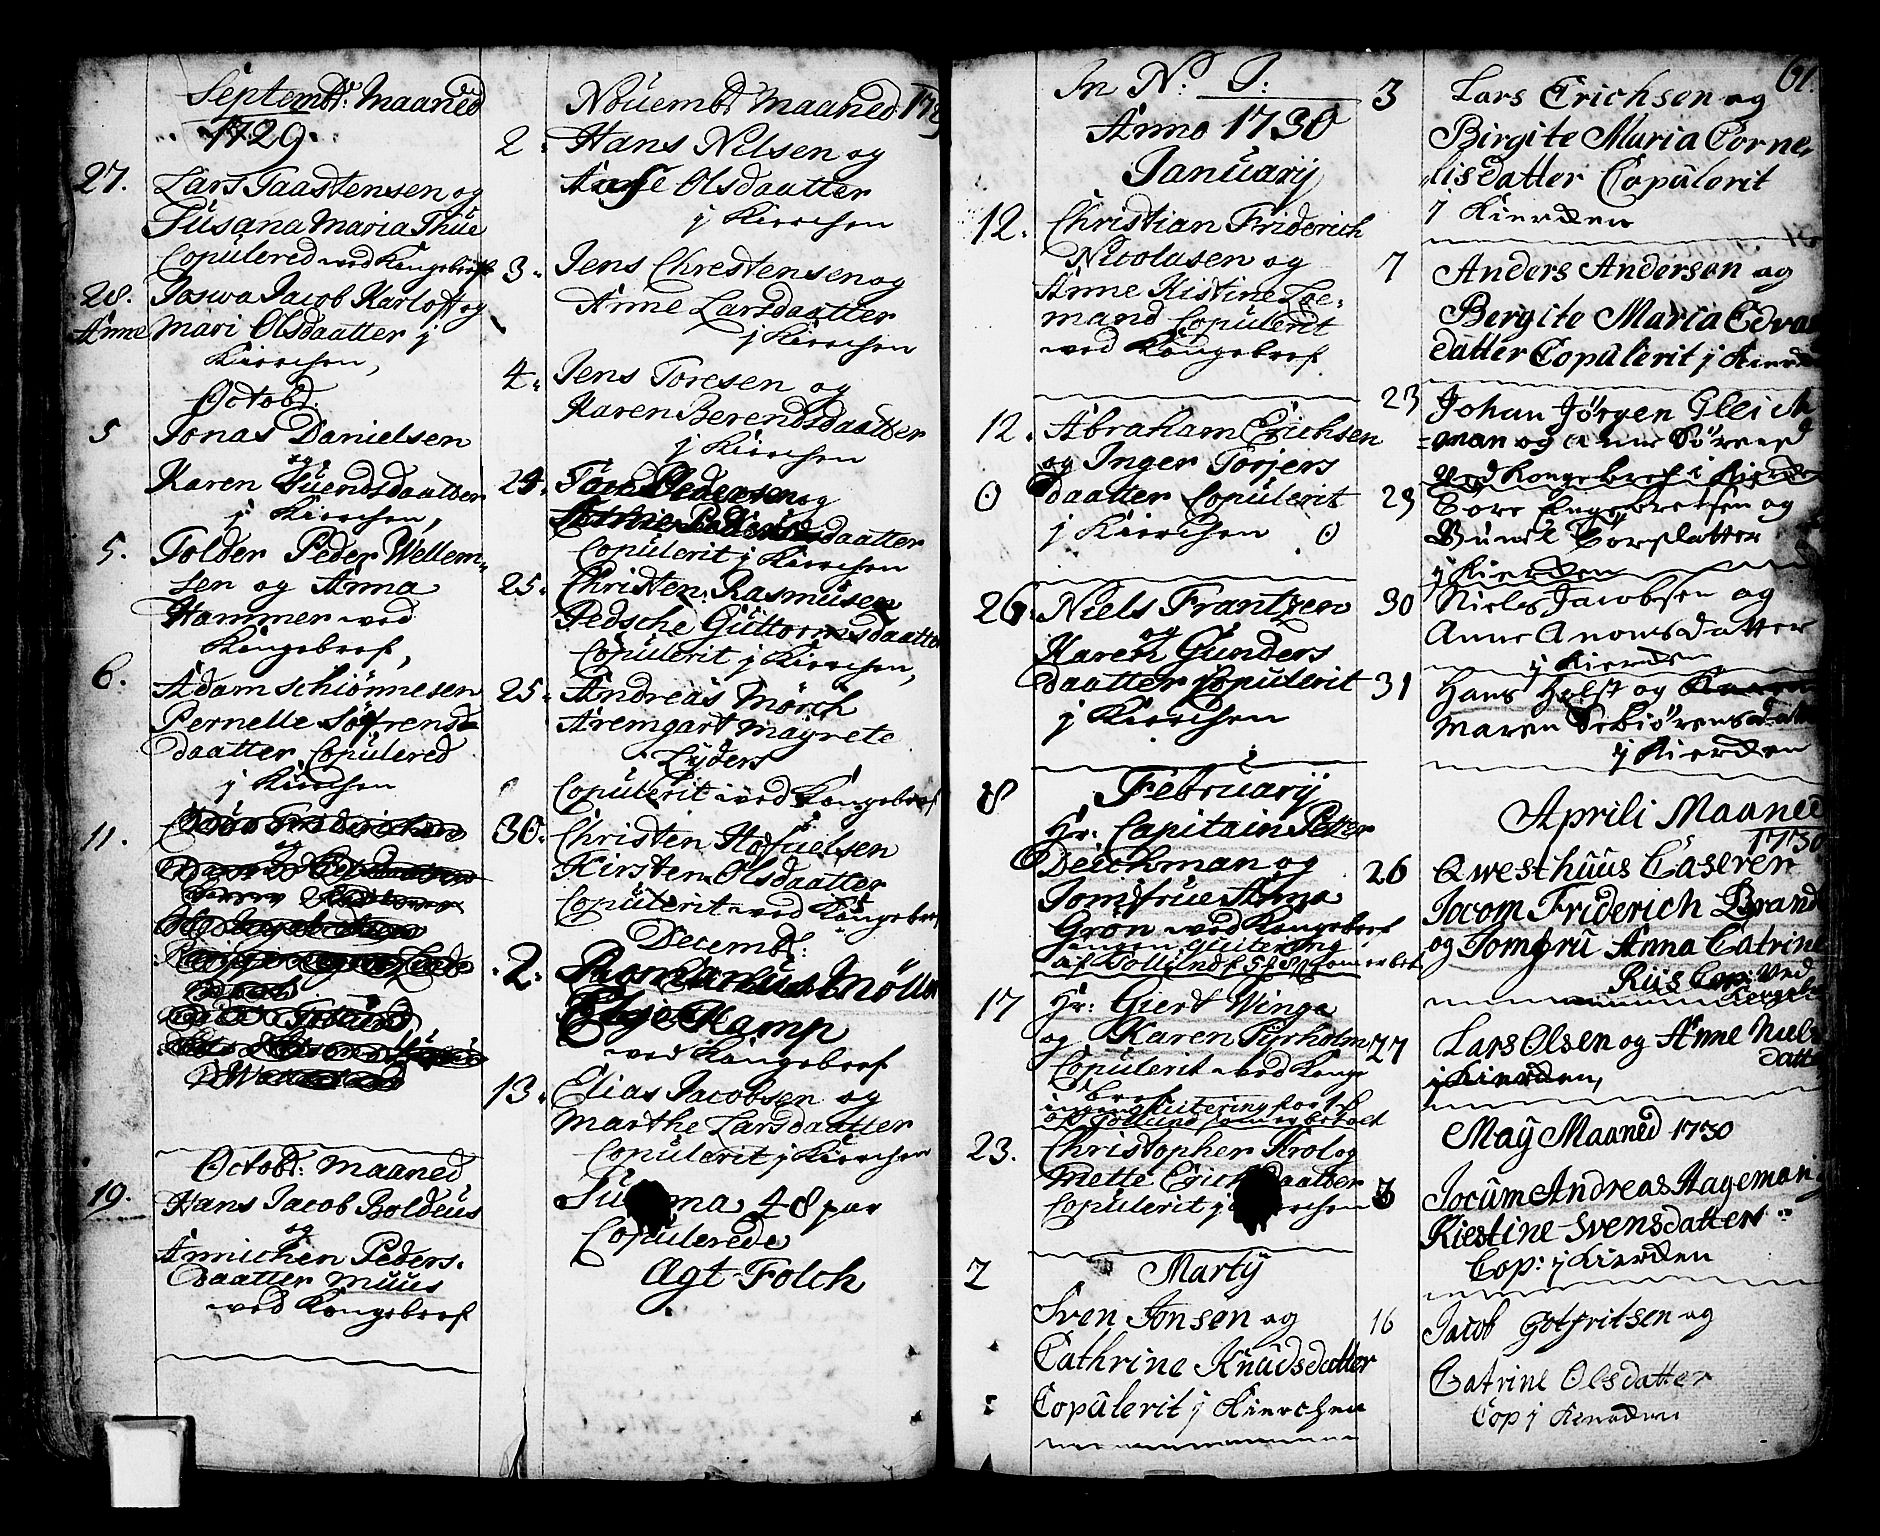 Septembr: Maaned
1729.
27. Lars Taastensen og
Susana Maria Thue
Copulered ved Kongebref
28. Joswa Jacob Karloft og
Anne Mari Olsdaatter j
Kirchen,
Octobr:
5 Jonas Danielsen
og
Karen Suendsdaatter
j Kirchen,
5. Tolder Peder Wellem-
sen og Anna
Hammer ved
Kongebref,
6. Adam Schiønnesen
Pernelle Søfrens-
daatter Copulered
j Kirchen
11.
Octobr: Maaned
19. Hans Jacob Boldeus
og
Annichen Peders.
daatter Muus
ved Kongebref
Nouembr Maaned 1729
2. Hans Nilsen og
Anne Olsdaatter
j Kierchen
3. Jens Chrestensen og
Anne Larsdaatter
j Kirchen
4. Jens Toresen og
Karen Berendsdaatter
j Kirchen
Pedersen og
daatter
Copulerit j Kierchen
25. Christen Rasmusen
Pedsche Guttormsdaatter
Copulerit j Kierchen,
25. Andreas Mørch
Aremgart Magrete
Lyders
Copulerit ved Kongebref
30. Christen Hofuelsen
Kirsten Olsdaatter
Copulerit ved Kongebref
Decembr:
2. Møller
Kamp
ved Kongebref
13. Elias Jacobsen og
Marthe Larsdaatter
Copulerit j Kierchen
Suma 48 par
Copulerede
Agt Folch
In No. J:
Anno 1730
January
12. Christian Friderich
Nicolasen og
Anne Kistine Loe-
mand Copulerit
ved Kongebref.
12. Abraham Erichsen
og Inger Torjers
0 daatter Copulerit
j Kierchen 0
26. Niels Frantzen
og
Karen Gunders
daatter Copulerit
j Kierchen
February
8 Hr: Capitain Petter
Deichman og
Jomfrue Anna
Grøn ved Kongebref
17 Hr: Giert Winge
og Karen Tyrholm
Copulerit ved Konge
bref
23. Christopher Krol og
Mette Erichsdaatter
Copulerit j Kierchen
Marty
2
Sven Jonsen og
Cathrine Knudsdatter
Copulerit j Kierchen
61.
3 Lars Erichsen og
Birgite Maria Corne-
lisdatter Copulerit
j Kierden
7 Anders Andersen og
Bergite Maria Edva
datter Copulerit j Kierd
23 Johan Jørgen Gleich
=man og Anne Sørens
ved Kongebref i Kierden
29 Tore Engebretsen og
j Kierden
30 Niels Jacobsen og
datter
j Kierden
31 Hans Holst og
Maren datter
j Kierden
Aprili Maaned
1730
26 Qwesthuus Caserer
Jocom Friderich Brand
og Jomfru Anna Catrine
Riis Cop: ved
Kongebr
27 Lars Olsen og Anne Niels
datter
j Kierden,
May Maaned 1730
3 Jocum Andreas Hageman
Kiestine Svensdatter
Cop: j Kierden
16 Jacob Gotfritsen og
Catrine Olsdatter
Cop j Kierden